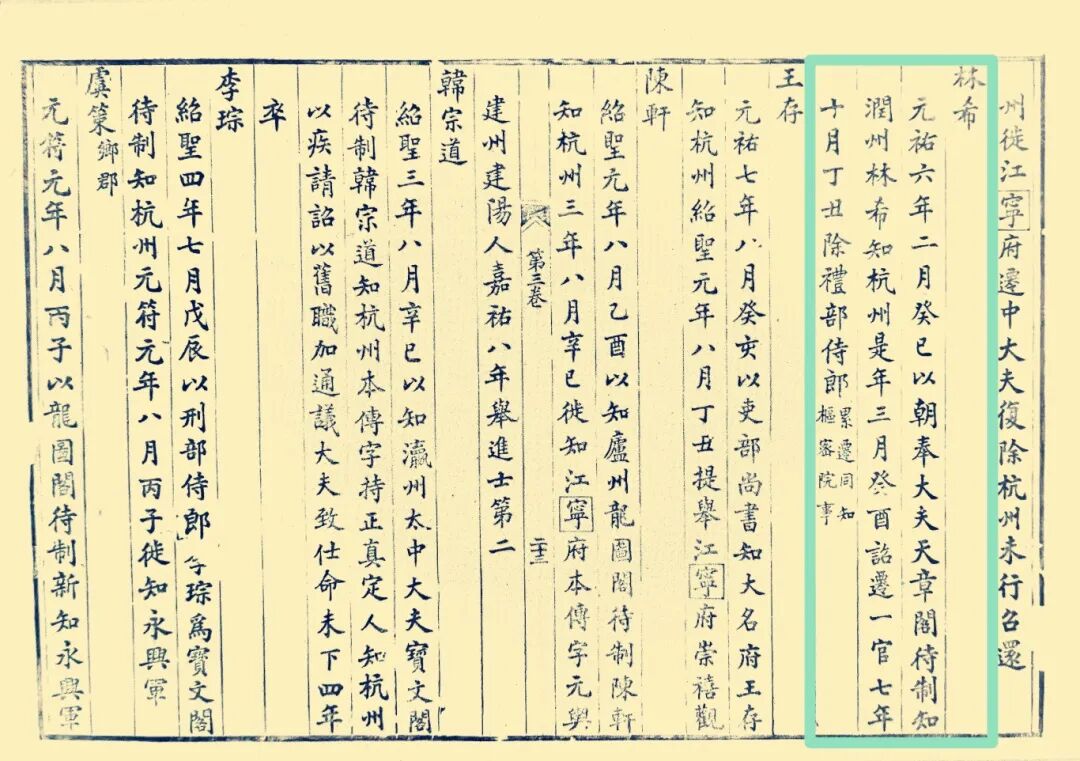 州徙江寧府遷中大夫復除杭州未行召還
林希
元祐六年二月癸巳以朝奉大夫天章閣待制知
潤州林希知杭州是年三月癸酉詔遷一官七年
十月丁丑除禮部侍郎累遷同知樞密院事
王存
元祐七年八月癸亥以吏部尚書知大名府王存
知杭州紹聖元年八月丁丑提舉江寧府崇禧觀
陳軒
紹聖元年八月乙酉以知廬州龍圖閣待制陳軒
知杭州三年八月辛巳徙知江寧府本傳字元輿
第三卷 二十三
建州建陽人嘉祐八年舉進士第二
韓宗道
紹聖三年八月辛巳以知瀛州太中大夫寶文閣
待制韓宗道知杭州本傳字持正真定人知杭州
以疾請詔以舊職加通議大夫致仕命未下四年
卒
李琮
紹聖四年七月戊辰以刑部侍郎李琮爲寶文閣
待制知杭州元符元年八月丙子徙知永興軍
虞策鄉郡
元符元年八月丙子以龍圖閣待制新知永興軍